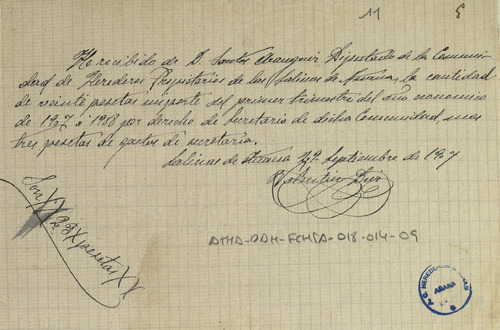 11
He recibido de D. Santos Aranguiz Diputado de la Comuni-
dad de Herederos Propietarios de las Salinas de Añana, la cantidad
de veinte pesetas importe del primer trimestre del año economico
de 1927 á 1928 por derecho de secretario de dicha Comunidad, mas
tres pesetas de gastos de secretaria.
Salinas de Añana Septiembre de 1927
Valentin
Son XX 23 X pesetas XX
ATHA-DAH-FCHSA-018-014-09
AÑANA